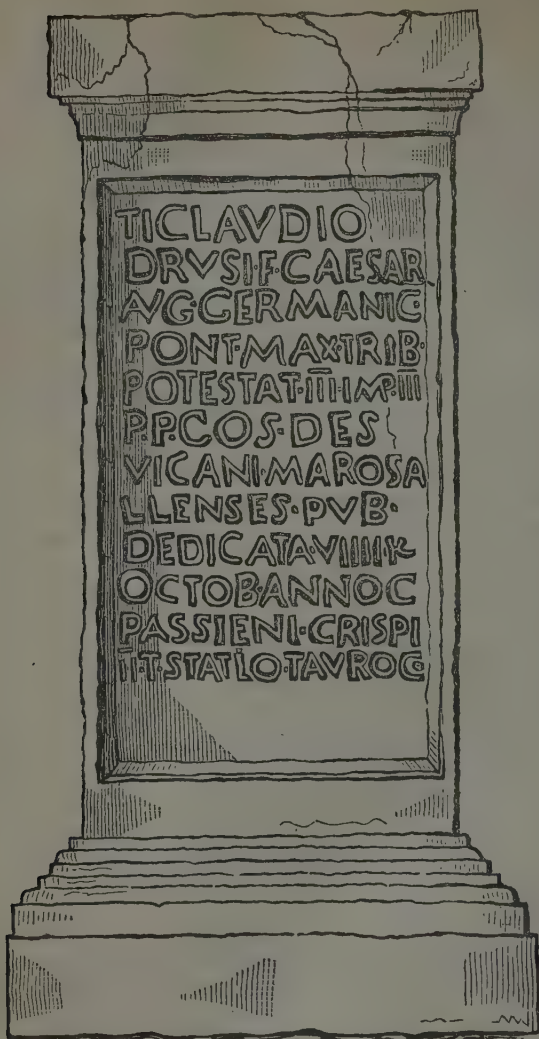 TICLAVDIO
DRVSI·F·CAESAR
AVG·GERMANIC·
PONT·MAX·TRIB·
POTESTAT·III·IMP·III
P·P·COS·DES
VICANI·MAROSA
LLENSES·PVB·
DEDICATA·VIIII·K
OCTOB·ANNO C
PASSIENI·CRISPI
II·T·STATLO·TAVRO C·